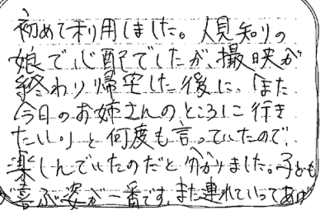 初めて利用しました。人見知りの
娘で心配でしたが、撮映が
終わり帰宅した後に、「また
今日のお姉さんのところに行き
たい!」と何度も言っていたので、
楽しんでいたのだと分かりました。子ども
喜ぶ姿が一番です。また連れていってあげ